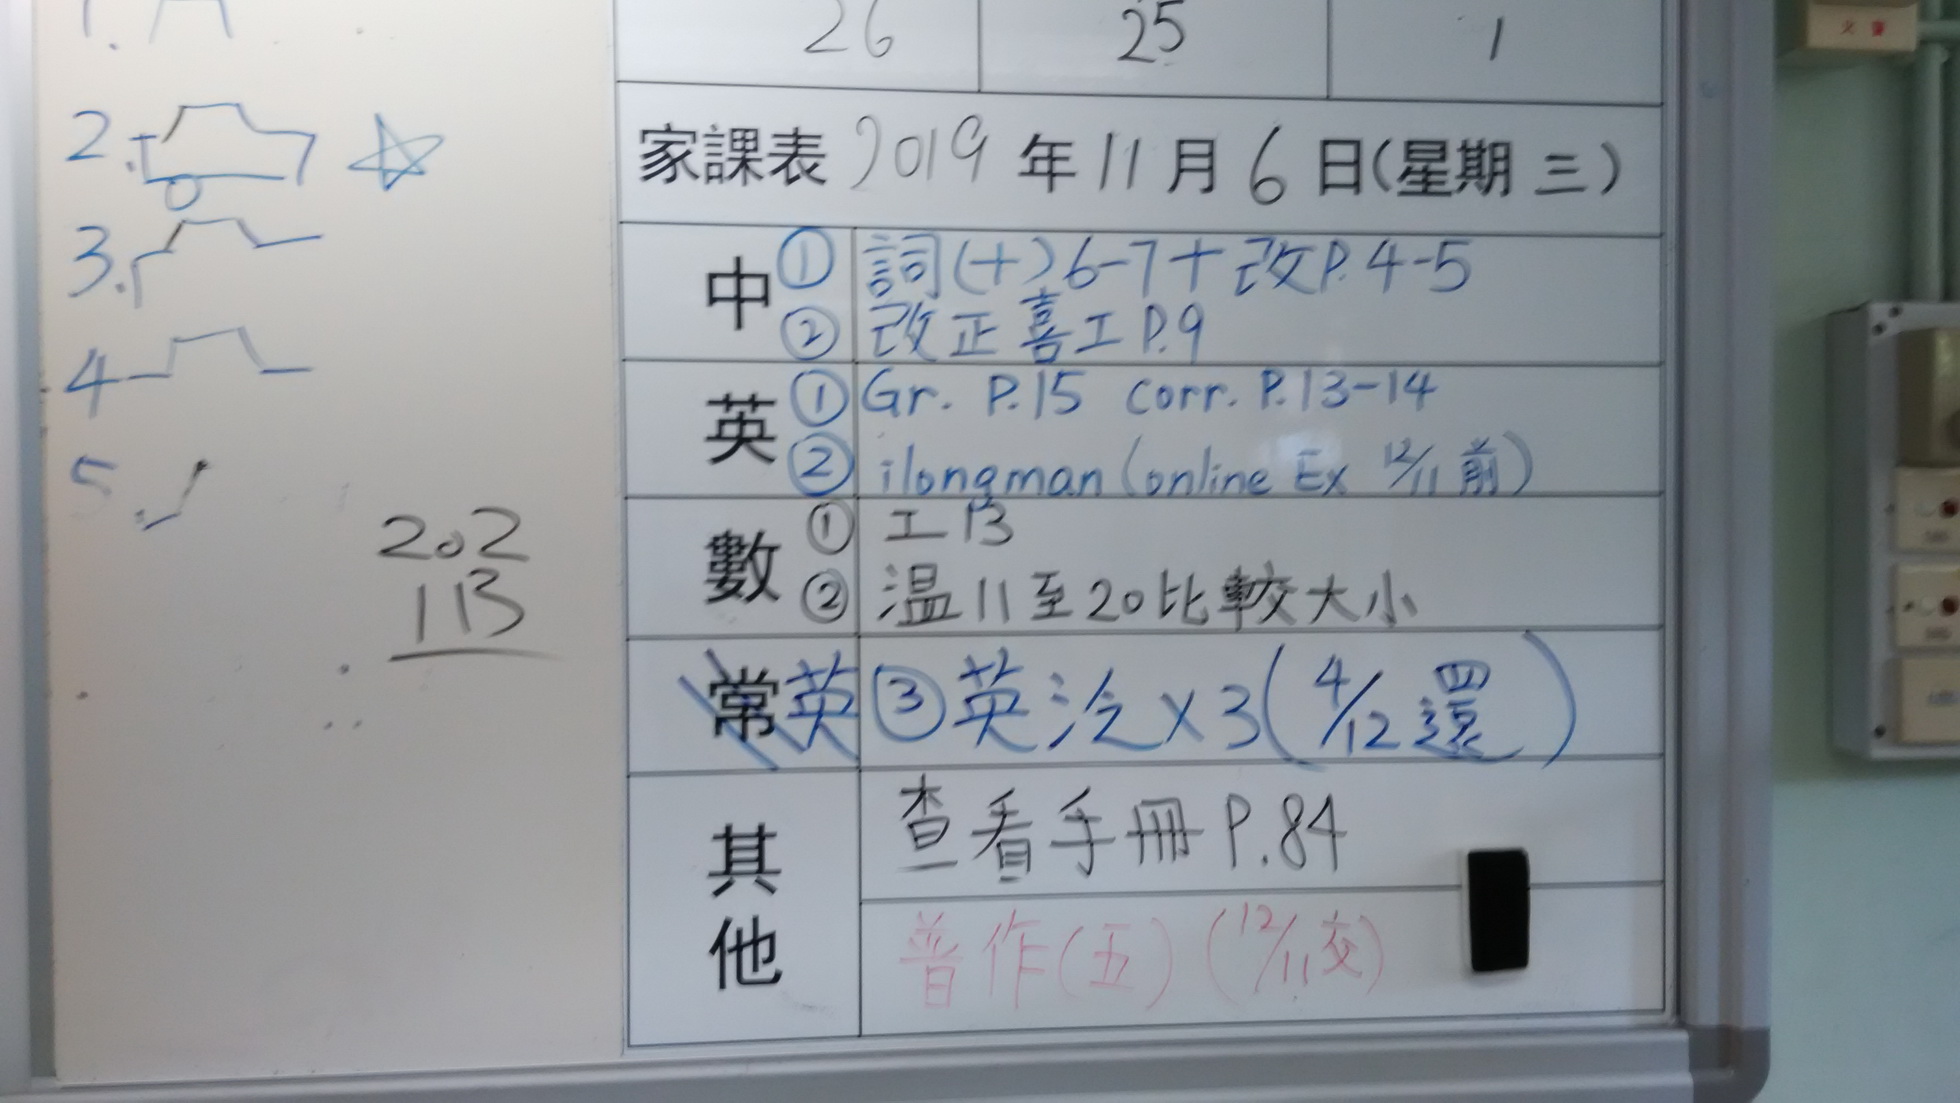 26 25 1
1.
2.
3.
4
5
202
113
家課表 2019 年 11 月 6 日(星期 三)
中 ① 詞(十)6-7+改P.4-5
② 改正喜工P.9
英 ① Gr. P.15 corr. P.13-14
② ilongman (online Ex 12/11前)
數 ① 工13
② 温11至20比較大小
常英 ③ 英汔x3(4/12 四還)
其他
查看手冊P.84
普作(五) (12/11交)